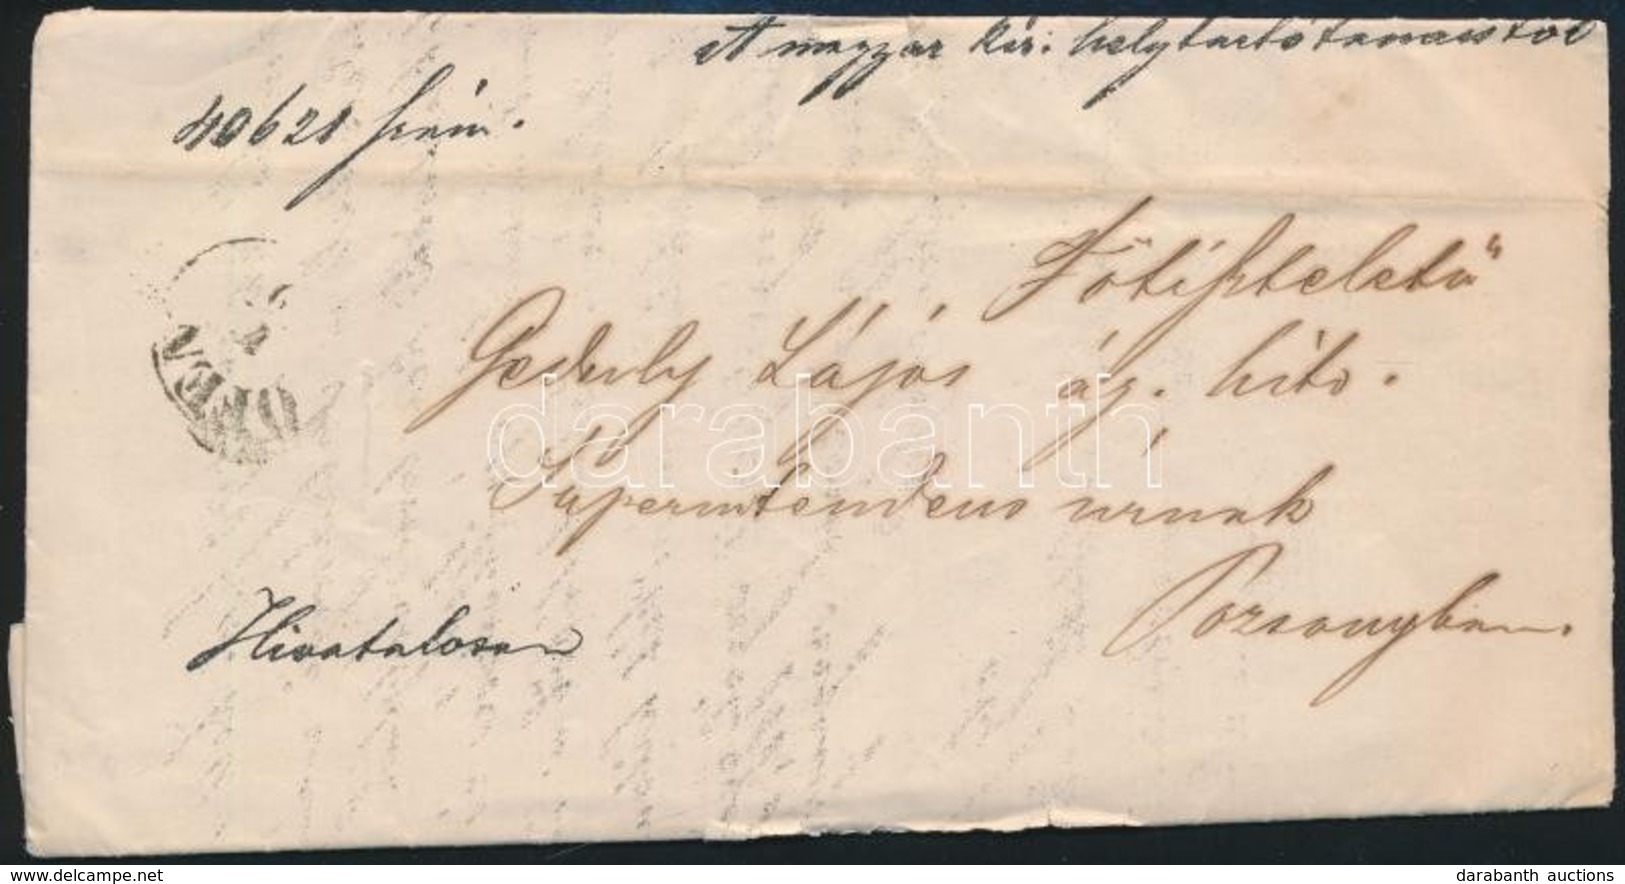 A magyar kir: helytartótanácstól
40621 szám.
OFEN
Főtiszteletű
Geduly Lajos ág. hito.
Superintendens úrnak
Pozsonyban.
Hivatalosan
darabanth
www.delcampe.net
darabanth auctions